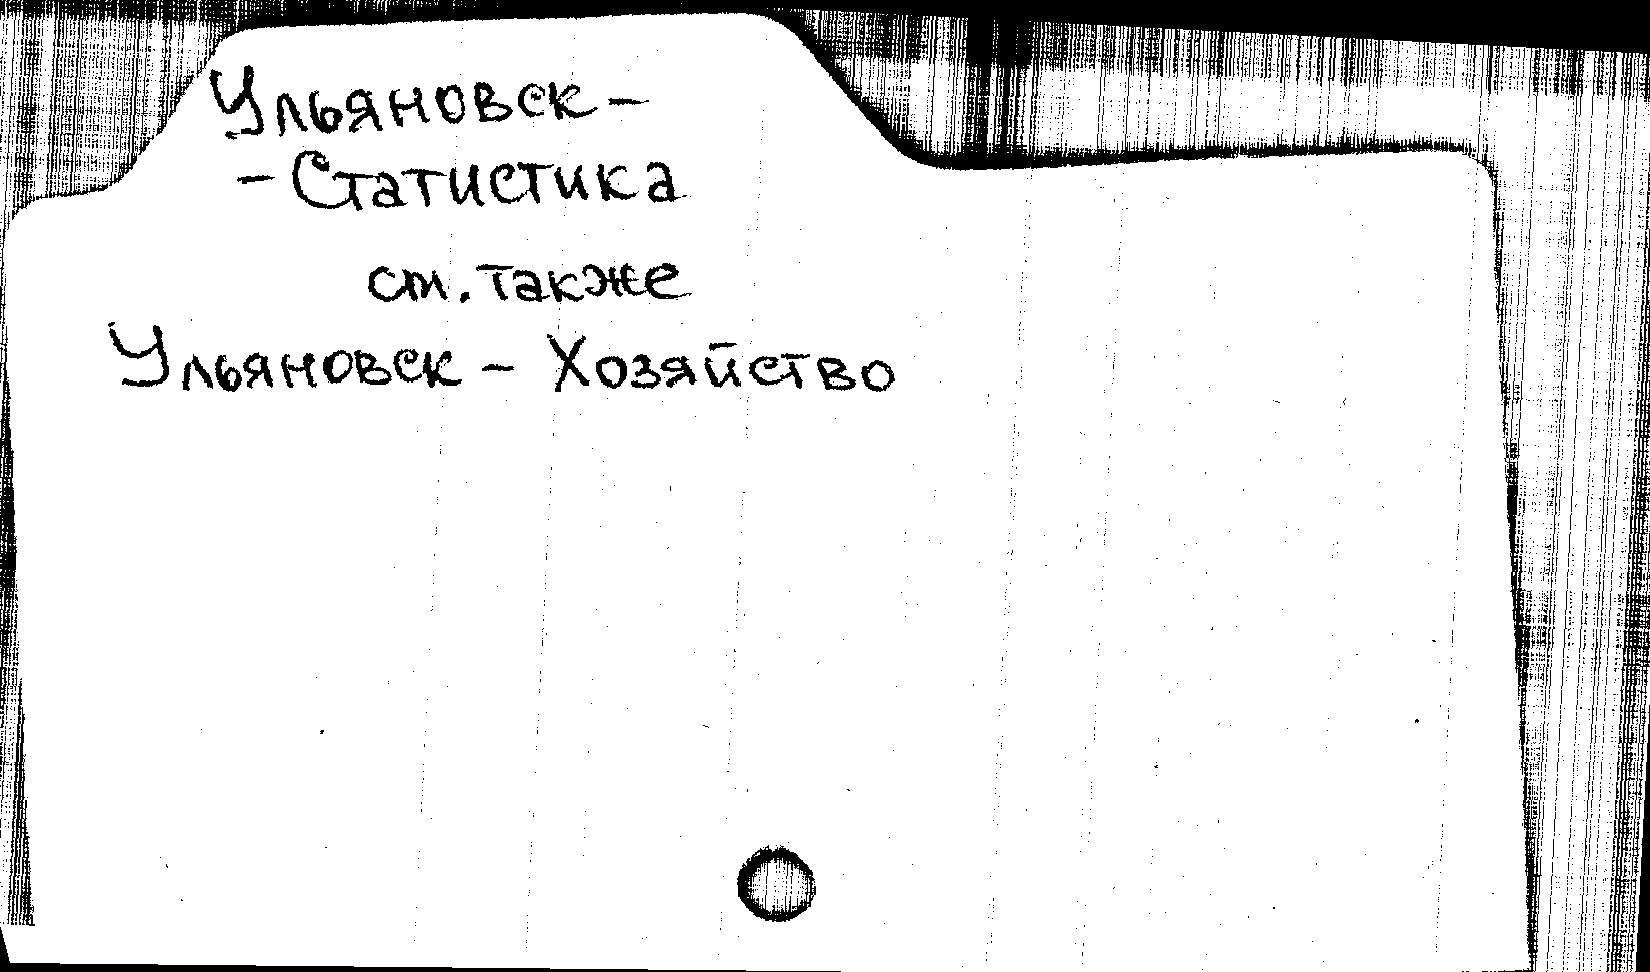 Ульяновск –
– Статистика
ст. также
Ульяновск – Хозяйство